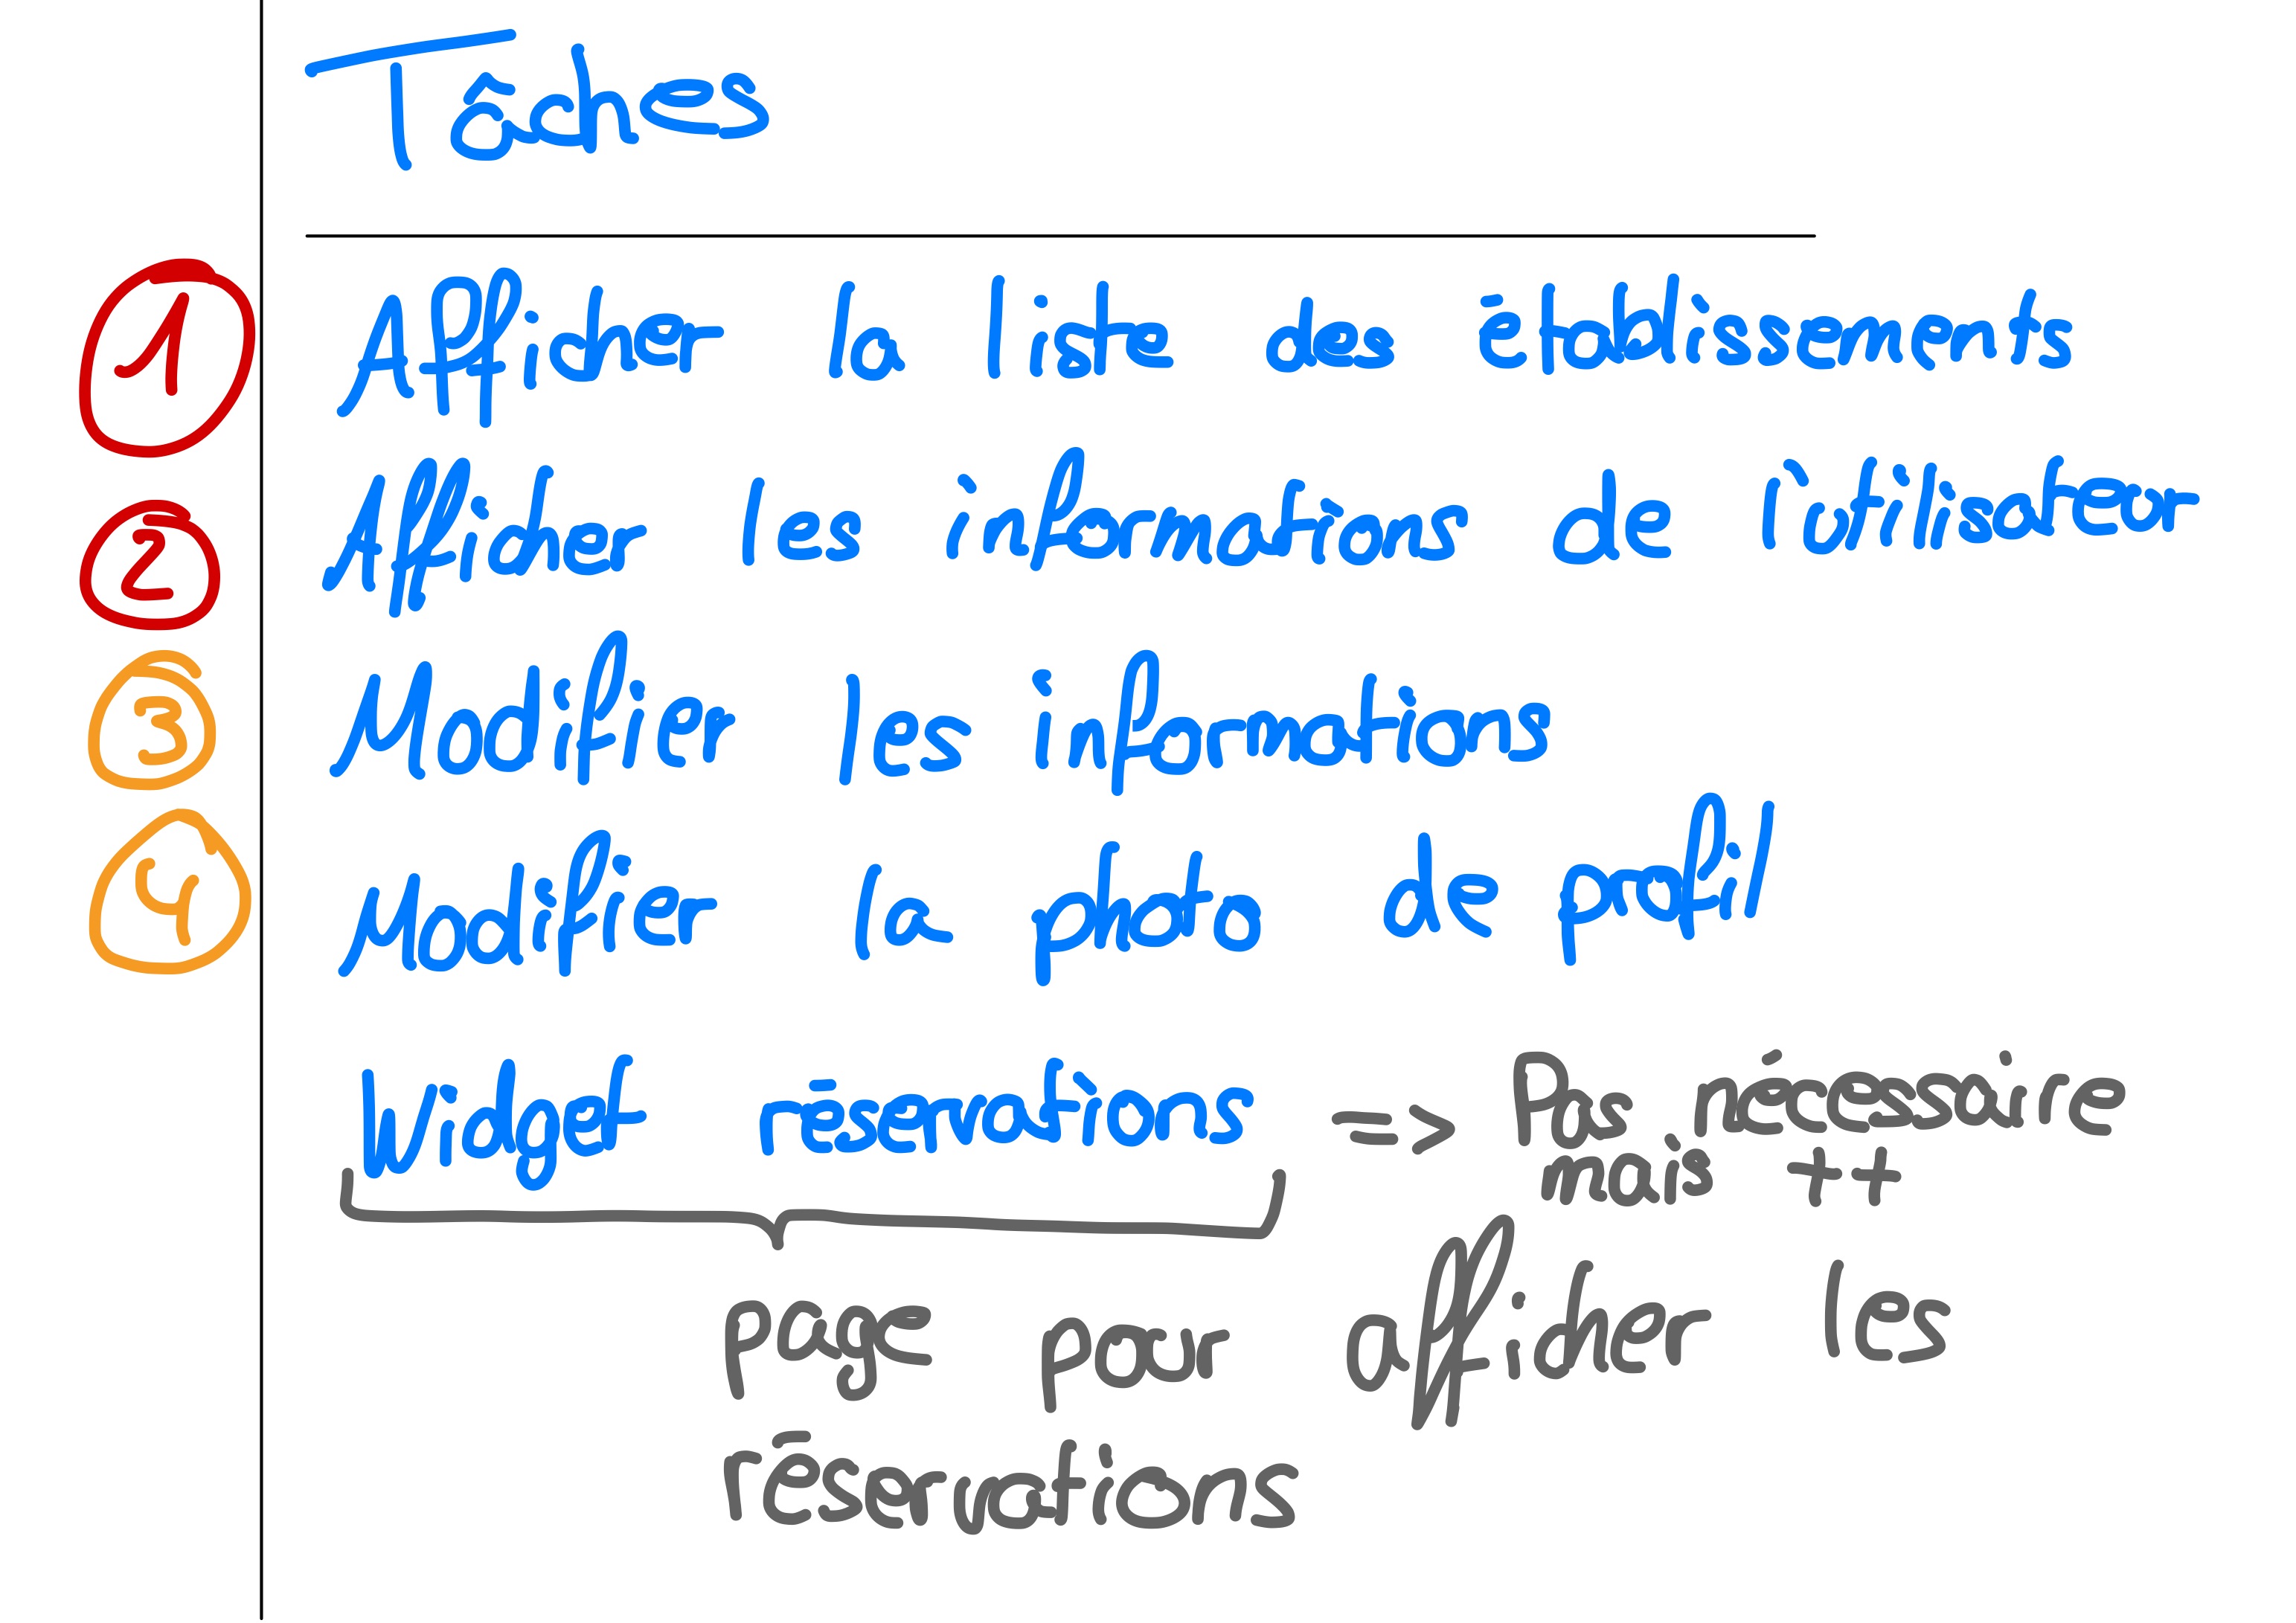 Tâches
1 Afficher la liste des établissements
2 Afficher les informations de l'utilisateur
3 Modifier les informations
4 Modifier la photo de profil
Widget réservations => Pas nécessaire
mais ++
page pour afficher les
réservations